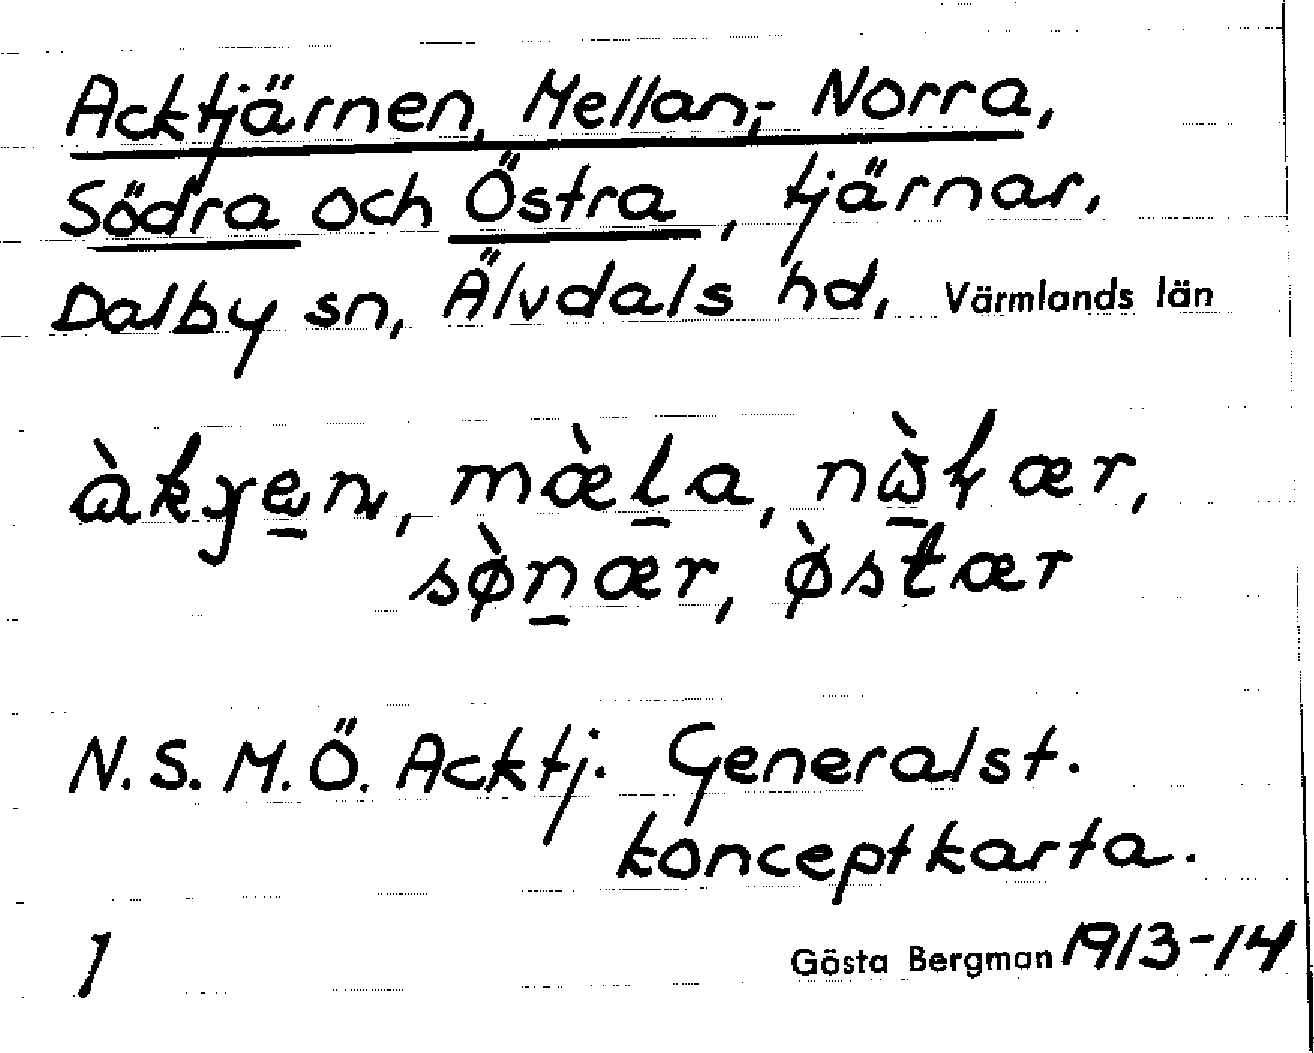 Acktjärnen, Mellan-, Norra,
Södra och Östra, tjärnar,
Dalby sn, Älvdals hd, Värmlands län
N. S. M. Ö. Acktj. Generalst.
konceptkarta.
1 Gösta Bergman 1913-14